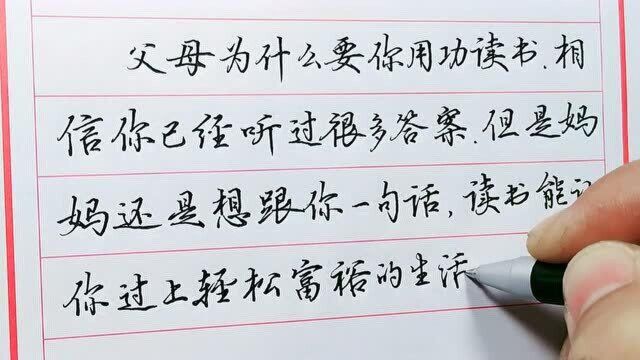 父母为什么要你用功读书.相
信你已经听过很多答案.但是妈
妈还是想跟你一句话,读书能
你过上轻松富裕的生活